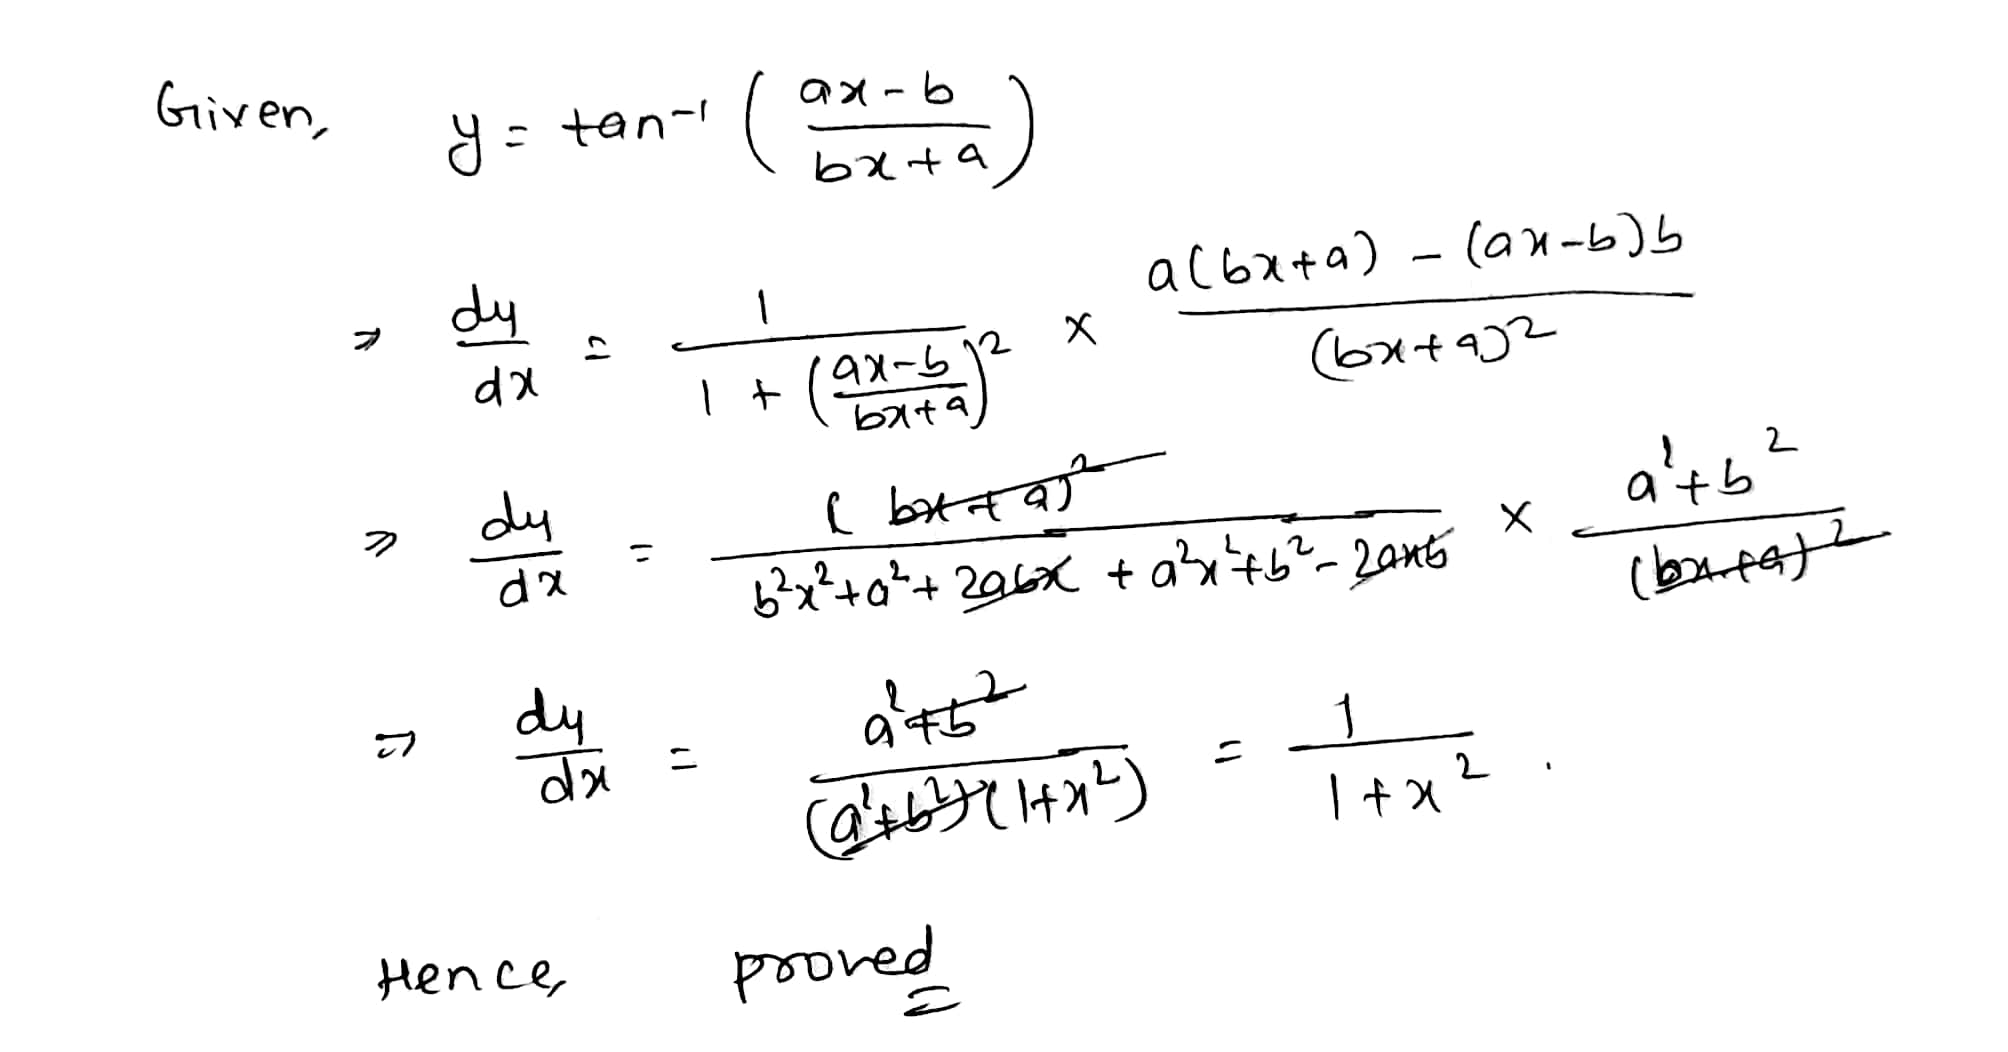 Given, y = tan⁻¹ ( (ax-b) / (bx+a) )
⇒ dy/dx = 1 / (1 + ((ax-b)/(bx+a))²) × (a(bx+a) - (ax-b)b) / (bx+a)²
⇒ dy/dx = (bx+a)² / (b²x²+a²+2abx + a²x²+b²-2axb) × (a²+b²) / (bx+a)²
⇒ dy/dx = (a²+b²) / ((a²+b²)(1+x²)) = 1 / (1+x²) .
Hence, proved